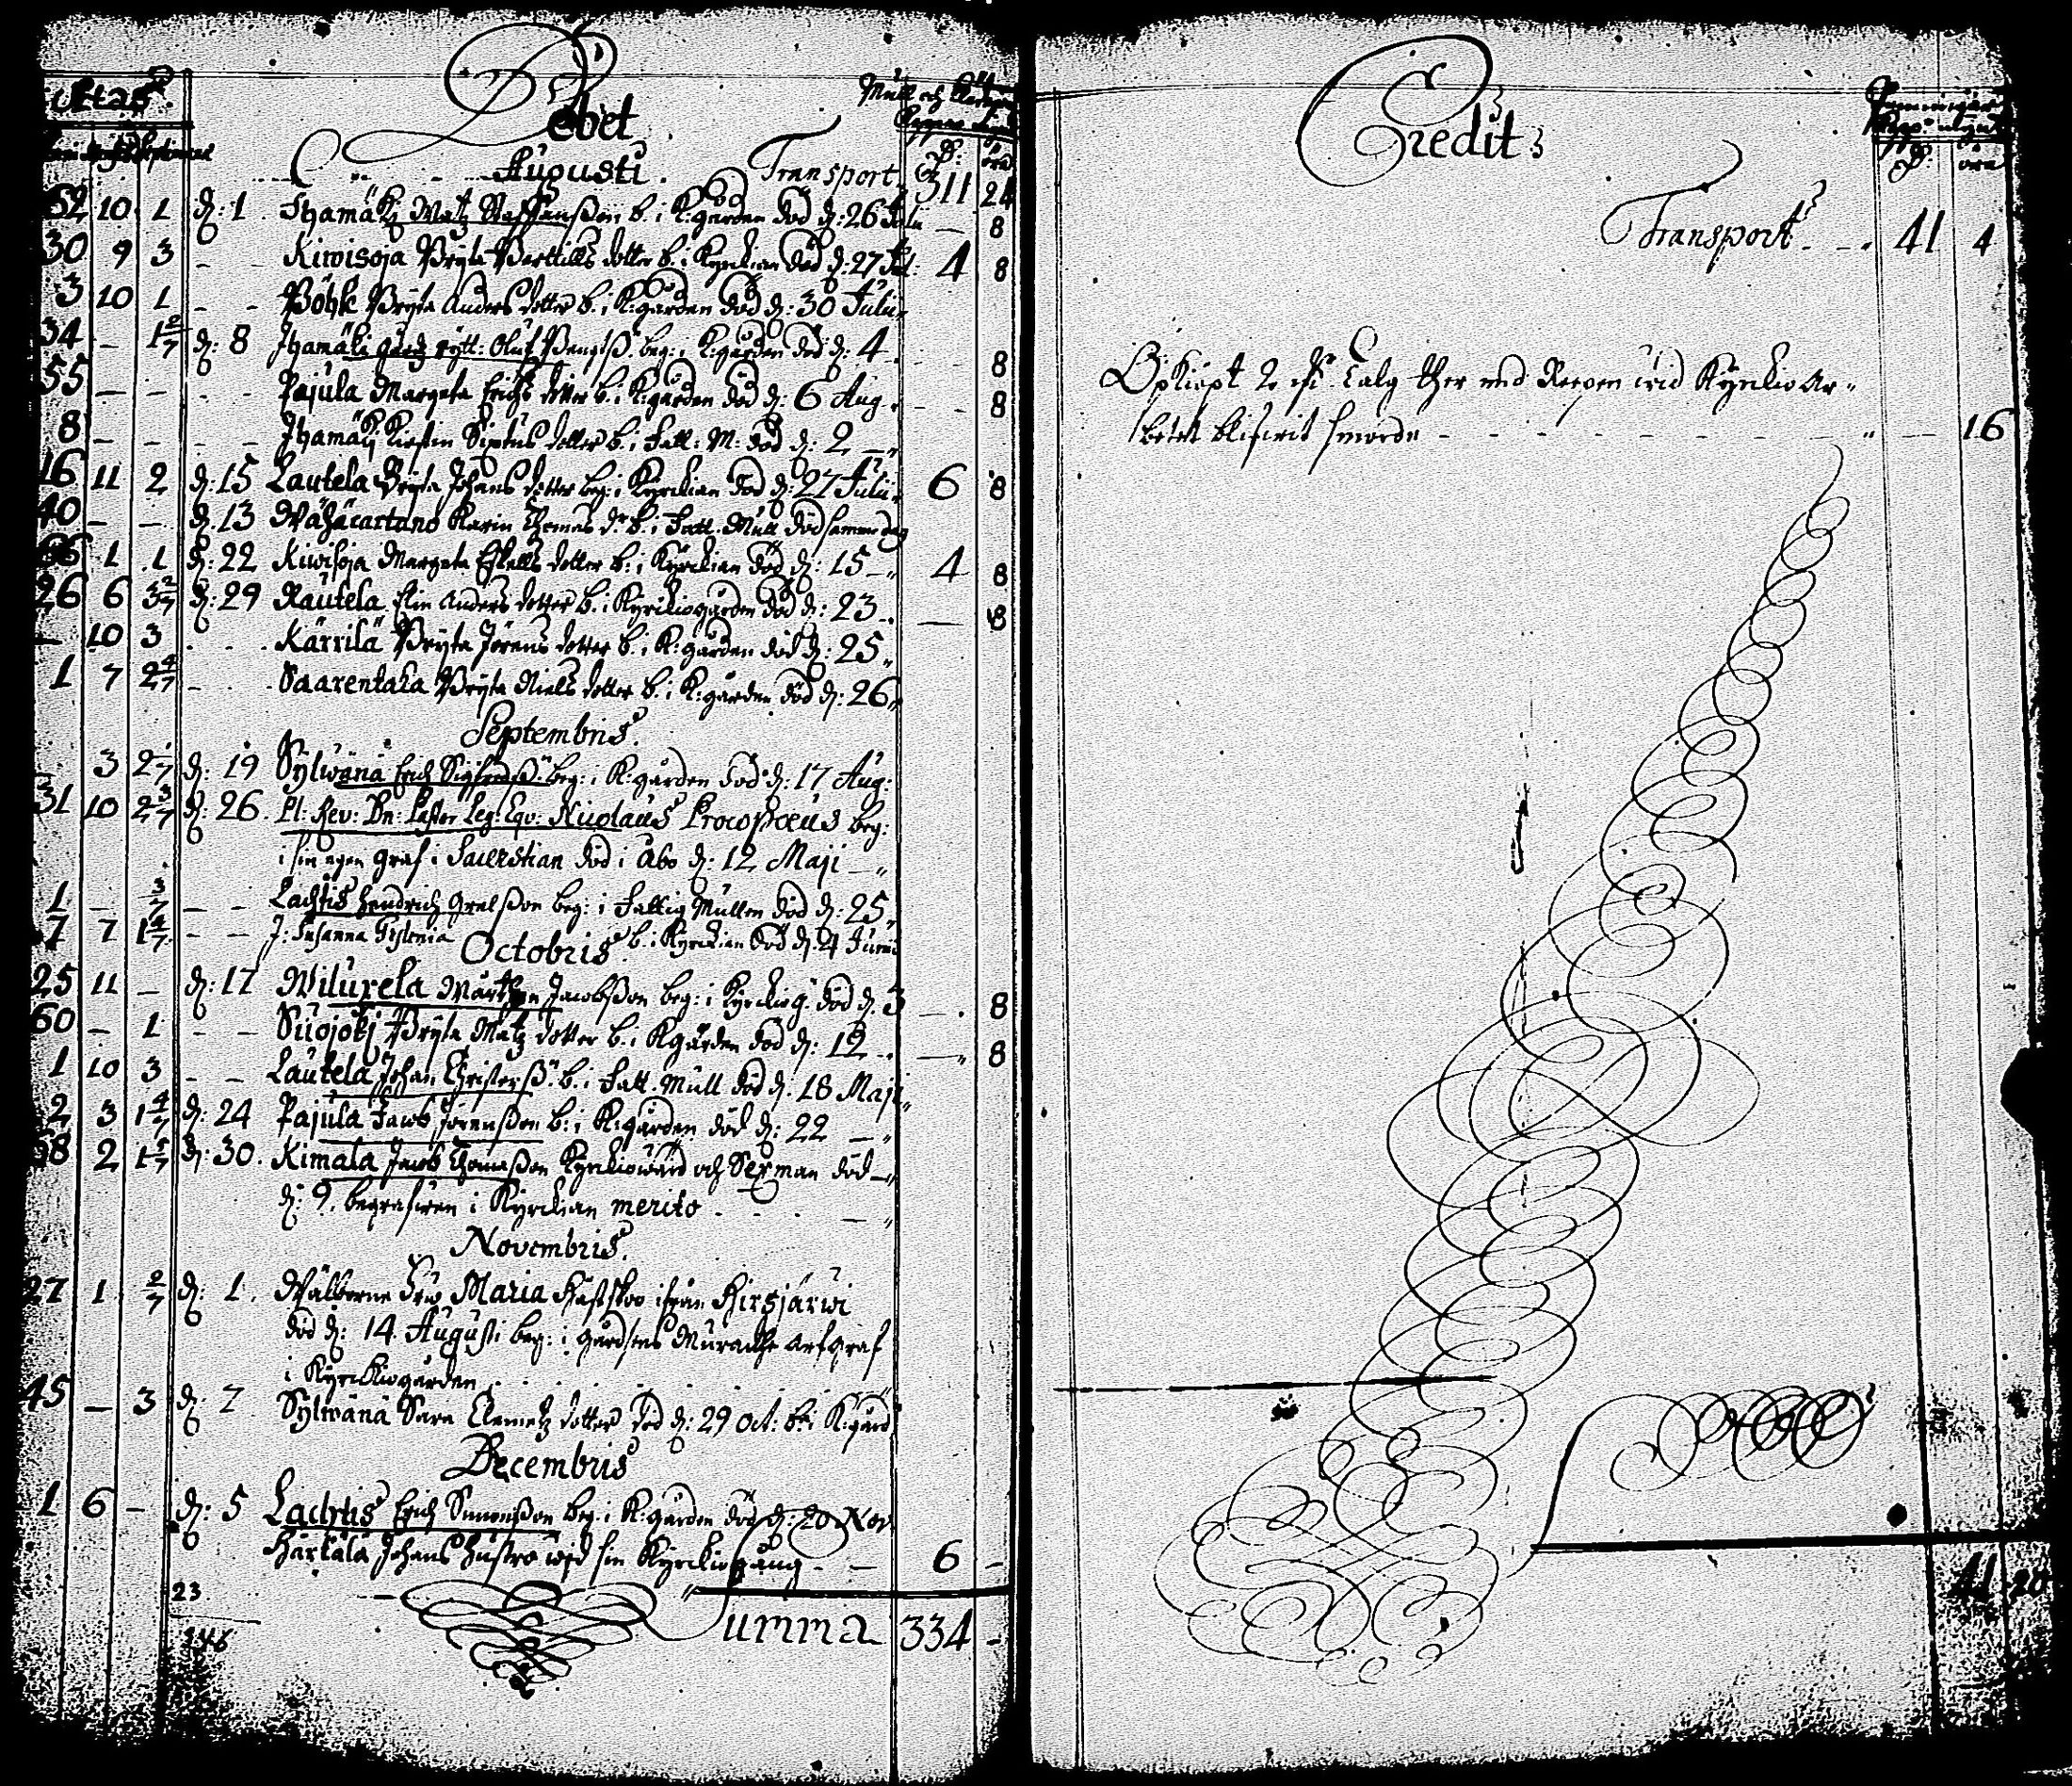 Ætas
Debet
Mull och
Augusti. Transport 311 24
52 10 1 d: 1. Ihamäki Matz Staffansson b. i K:gården död d: 26 Julii — 8
30 9 3 – – Kiwisoja Bryta Berttills dotter b. i Kyrckian död d: 27 Jul: 4 8
3 10 1 – – Bööhk Bryta Anders dotter b. i K:gården död d: 30 Julii
34 – 1 2/7 d: 8 Ihamäki gård rytt: Oluf Bengtss. beg: i K:gården död d: 4. 8
55 – – – Pajula Margeta Erichs dotter b. i K:gården död d: 6 Aug. – 8
8 – – – Ihamäki Kirstin Sigfrids dotter b. i Fatt: M: död d: 2 –
16 11 2 d: 15 Lautela Bryta Johans dotter beg: i Kyrckian död d: 27 Julii 6 8
40 – – d. 13 Wähäcartano Karin Thomas dr b. i Fatt. Mull död samma dag
66 1 1 d: 22 Kiwisoja Margeta Eskells dotter b: i Kyrckian död d: 15 – 4 8
26 6 3 2/7 d: 29 Rautela Elin Anders dotter b. i Kyrckiogården död d: 23 – — 8
– 10 3 . . . Karrilä Bryta Jörens dotter b. i K:gården död d: 25
1 7 2 4/7 – . Saarentaka Bryta Niels dotter b. i K:gården död d: 26
Septembris.
3 2 1/7 d: 19 Sylwänä Erich Sigfredss. beg: i K:gården död d: 17 Aug:
31 10 2 3/7 d: 26. Pl: Rev: Dn: Pastor Leg: Eqv: Nicolaus Procopoeus beg:
i sin egen graf i Sacerstian död i Åbo d: 12 Maji –
1 – 3/7 – – Lachtis Hendrich Grelsson beg: i Fattig Mullen död d: 25
7 7 1 4/7 – – J: Susanna Gislenia b: i Kyrckian död d. 4 Junii
Octobris.
25 11 – d: 17 Wilurela Mårthen Jacobsson beg: i Kyrckiog: död d. 3 — 8
60 – 1 – – Suojoki Bryta Matz dotter b. i Kgården död d: 12 — 8
1 10 3 – – Lautela Johan Christerss. b. i Fatt. Mull död d: 18 Maji
2 3 1 4/7 d: 24 Pajula Jacob Jörensson b: i K:gården död d: 22 –
68 2 1 5/7 d: 30. Kimala Jacob Thomasson Kyrckiowärd och Sexman död –
d: 9. begrafwen i Kyrckian merito – – –
Novembris.
27 1. 2/7 d: 1. Wälborne Frw Maria Hästskoo ifrån Hirsjärwi
död d: 14. Augusti beg: i gårdsens Murade Arfgraf
i Kyrckiogården
45 – 3 d: 7 Sylwänä Sara Clemetz dotter död d: 29 Oct: b: i K:gård
Decembris
1 6 – d: 5 Lachtis Erich Simonsson beg: i K:gården död d: 20 Nov
Härkälä Johans hustro wid sin Kyrckiogång – — 6 –
23
Summa 334 –
146
Credit
öre
Transport – – 41 4
Opkiöpt 2 Talg ther med Reepen wid Kyrckio Ar-
betet blifwit smorde – – – – – – – — 16
41 20